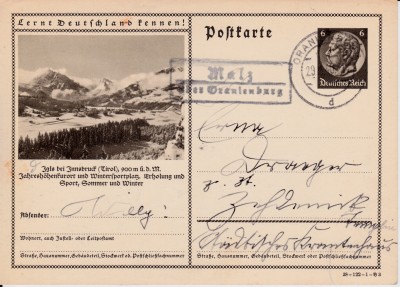 Lernt Deutschland kennen!
Postkarte
6 6
Deutsches Reich
ORANI
d
Malz
über Oranienburg
Igls bei Innsbruck (Tirol), 900 m ü. d. M.
Jahreshöhenkurort und Wintersportplatz, Erholung und
Sport, Sommer und Winter
Absender:
Willy!
Wohnort, auch Zustell- oder Leitpostamt
Straße, Hausnummer, Gebäudeteil, Stockwerk od. Postschließfachnummer
Erna
Draeger
z. Zt.
Zehdenick
Städtisches Krankenhaus
Straße, Hausnummer, Gebäudeteil, Stockwerk oder Postschließfachnummer